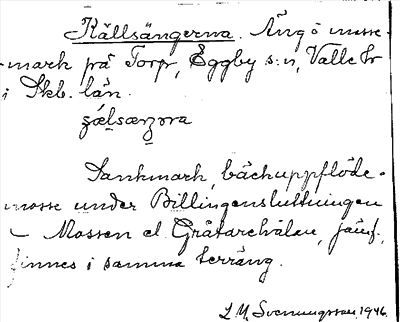 Källsängerna. Äng ö mosse-
-mark på Torp, Eggby s:n, Valle hr
i Skb. län.
Sankmark, bäckuppflöde-
mosse under Billingensluttningen
– Mossen el Gråtarehålan, jämf,
finnes i samma terräng.
L M Svenungsson 1946.